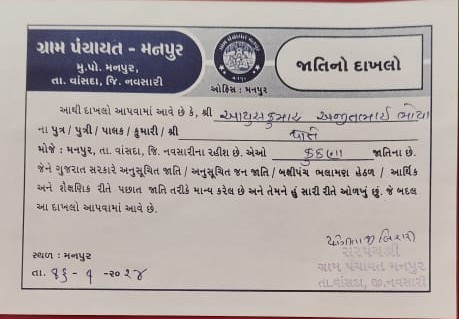 ગ્રામ પંચાયત - મનપુર
મુ.પો. મનપુર,
તા. વાંસદા, જિ. નવસારી
ઓફિસ : મનપુર
જાતિનો દાખલો
આથી દાખલો આપવામાં આવે છે કે, શ્રી આયુસકુમાર અજીતભાઈ ભોયા
ના પુત્ર / પુત્રી / પાલક / કુમારી / શ્રી
મોજે : મનપુર, તા. વાંસદા, જિ. નવસારીના રહીશ છે. એઓ કુકણા જાતિના છે.
જેને ગુજરાત સરકારે અનુસૂચિત જાતિ / અનુસૂચિત જન જાતિ / બક્ષીપંચ ભલામણ હેઠળ / આર્થિક
અને શૈક્ષણિક રીતે પછાત જાતિ તરીકે માન્ય કરેલ છે અને તેમને હું સારી રીતે ઓળખું છું. જે બદલ
આ દાખલો આપવામાં આવે છે.
સ્થળ : મનપુર
સરપંચશ્રી
ગ્રામ પંચાયત મનપુર
તા. -૨૦૨૪
તા.વાંસદા, જી.નવસારી